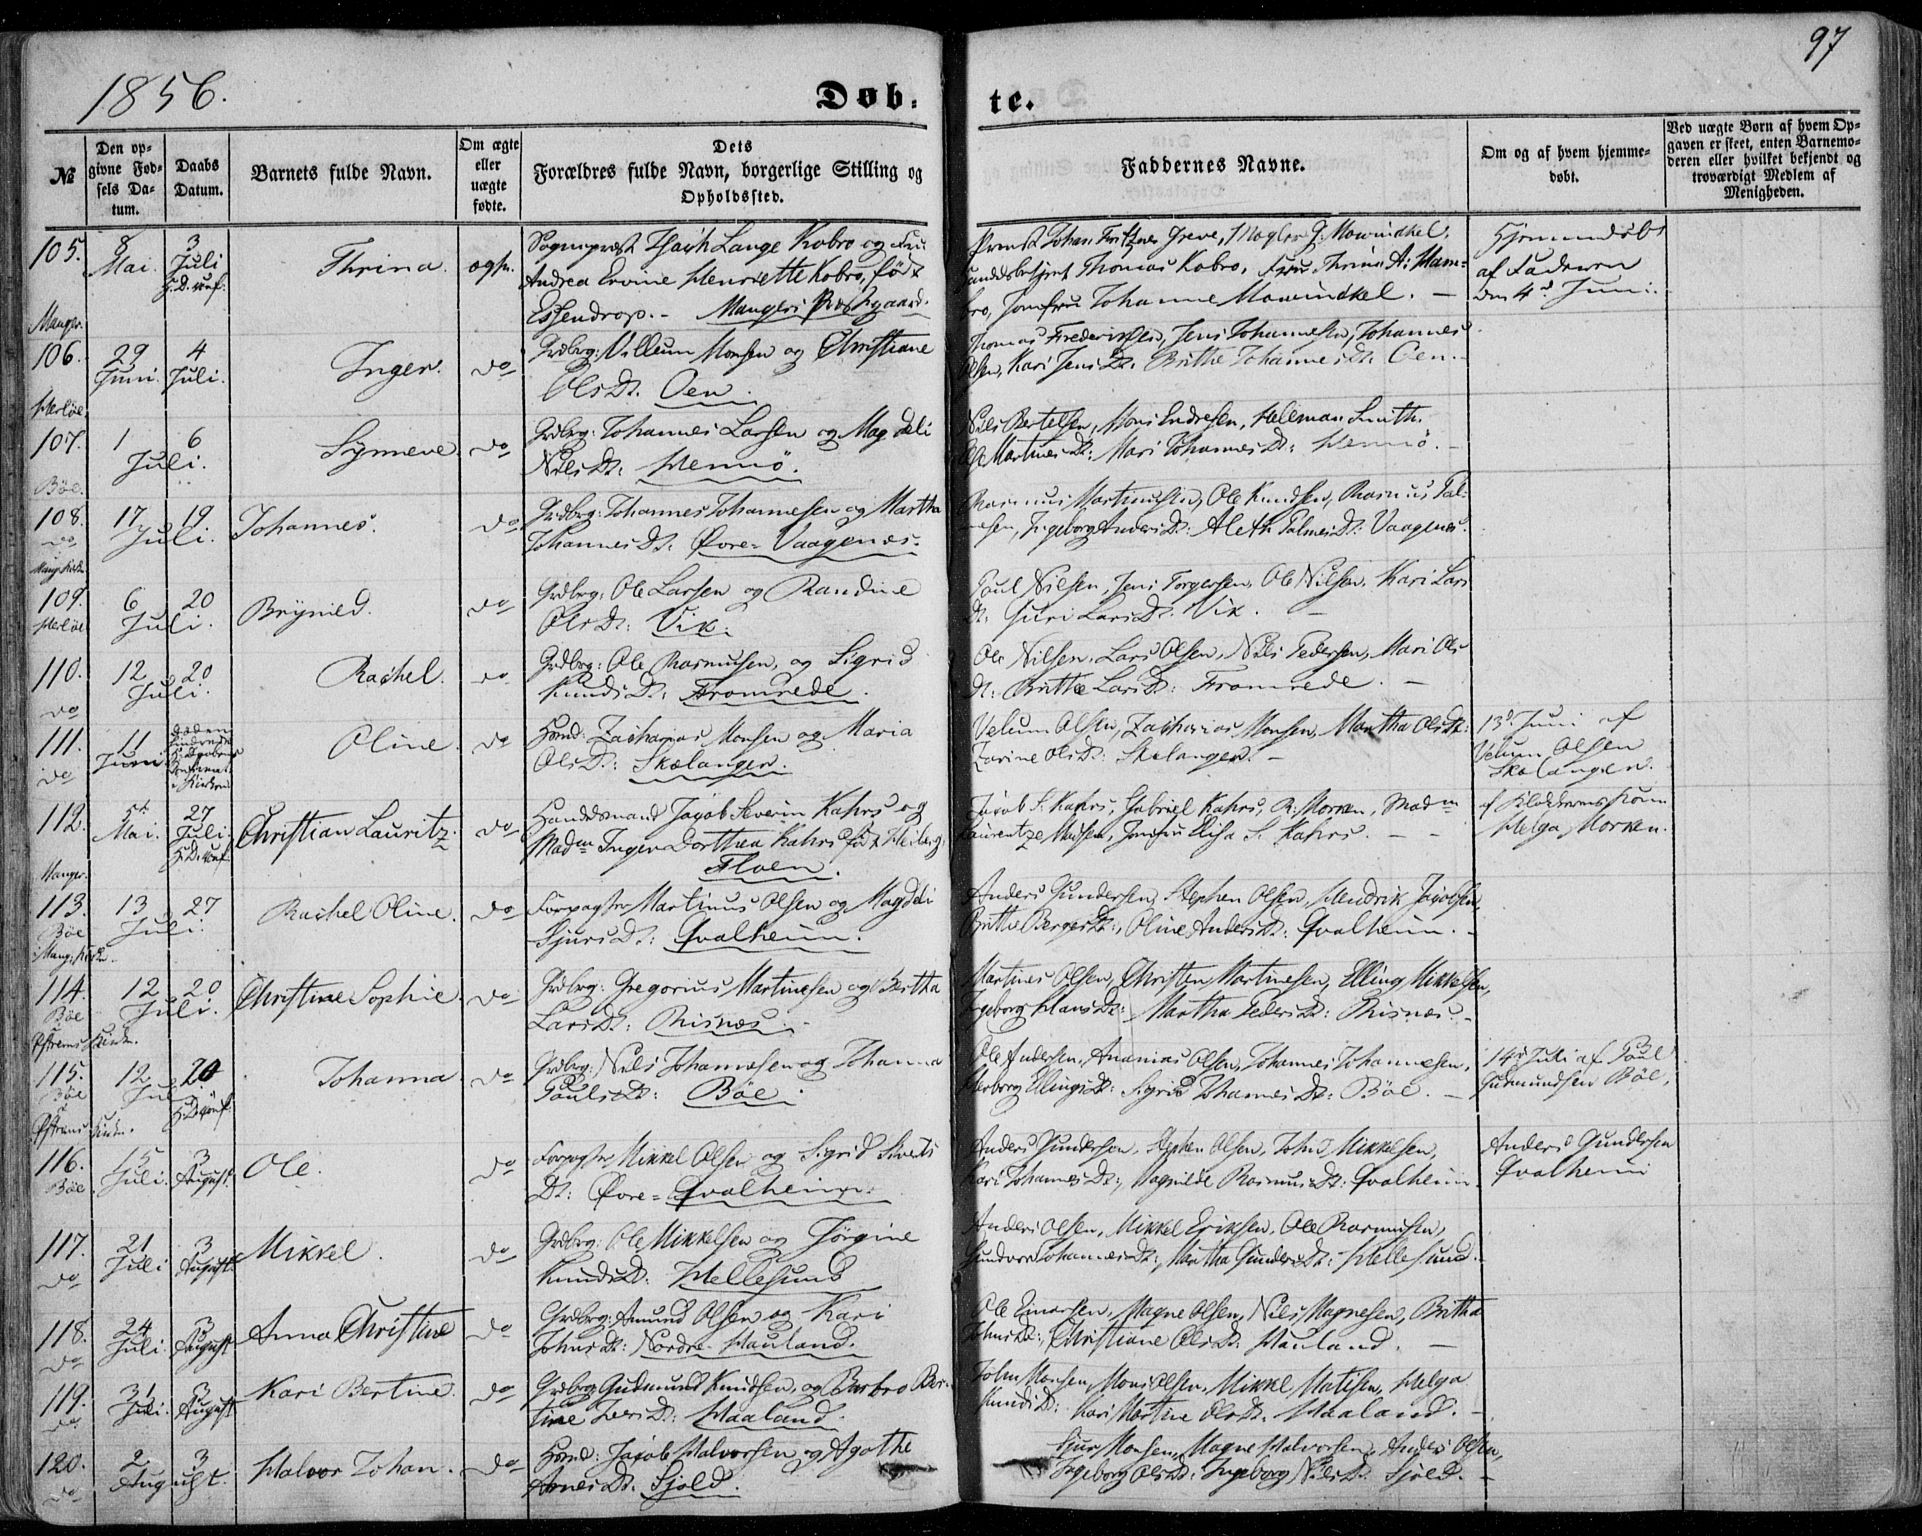 97
1856.
Døb-
te.
№
Den op-
givne Fød-
sels Da-
tum.
Daabs
Datum.
Barnets fulde Navn.
Om ægte
eller
uægte
fødte.
Dets
Forældres fulde Navn, borgerlige Stilling og
Opholdssted.
Faddernes Navne.
Om og af hvem hjemme-
døbt.
Ved uægte Børn af hvem Op-
gaven er skeet, enten Barnemo-
deren eller hvilket bekjendt og
troværdigt Medlem af
Menigheden.
105.
Manger.
8
Mai.
3
Juli
Thrina.
Sognepræst Isach Lange Kobro og Fru
Andrea Ervine Henriette Kobro, født
Essendrop. - Mangers Præstegaard.
Thomas Kobro,
bro, Jomfru Johanne Mowinckel. -
Hjemmedøbt
af Faderen
den 4d Juni.
106.
Herløe.
29
Juni.
4
Juli.
Inger.
do
Grdbrg: Villum Monsen og Christiane
Olsdt. Oen.
Thomas Frederiksen, Jens Johannesen, Johannes
Olsen, Kari Jensdt. Brithe Johannesdt. Oen.
107.
Bøe.
1
6
Juli.
Synneve.
do
Grdbrg: Johannes Larsen og Magdeli
Nilsdt: Hennø.
Nils Bertelsen, Mons Endresen, Helleman Smith.
Martinesdt: Mari Johannesdt: Hennø. -
108.
do
17
19
Juli.
Johannes.
do
Grdbrg: Johannes Johannesen og Martha
Johannesdt: Øvre-Vaagenes.
Rasmus Martinusen, Ole Knudsen, Rasmus Pal-
mesen, Ingeborg Andersdt: Aleth Palmesdt: Vaagenes.
109.
Herløe
6
20
Juli.
Brynild.
do
Grdbrg: Ole Larsen og Randine
Olsdt: Vik.
Poul Nilsen, Jens Torgersen, Ole Nilsen, Kari Lars
Dt: Guri Larsdt: Vik. -
110.
do
12
20
Juli.
Rachel.
do
Grdbrg: Ole Rasmusen, og Sigrid
Knudsdt: Fromrede.
Ole Nilsen, Lars Olsen, Nils Pedersen, Mari Ols
Dt: Brithe Larsdt: Fromrede. -
111.
do
11
Juni
Oline.
do
Zacharias Monsen og Maria
Olsdt: Skælanger.
Velum Olsen, Zacharias Monsen, Martha Olsdt:
Zarine Olsdt: Skælanger. -
13d Juni af
Velum Olsen
Skælanger.
112.
Manger.
5t
Mai.
27
Juli
Christian Lauritz.
do
Handelsmand Jacob Severin Kahrs og
Madm Inger Dorthea Kahrs født Heiberg.
Floen.
Jacob S. Kahrs, Gabriel Kahrs, R. Morken, Madm
Elisa S. Kahrs. - -
af Klokkerens Kone
Helga Morken.
113.
Bøe
13
27
Juli.
Rachel Oline.
do
Forpagter Martinus Olsen og Magdeli
Sjursdt: Qvalheim.
Anders Gundersen, Stephen Olsen, Hendrik Jacobsen,
Brithe Bergesdt:, Oline Andersdt: Qvalheim. -
114.
Bøe
12
20
Juli.
Christine Sophie.
do
Grdbrg: Gregorius Martinesen og Bertha
Larsdt: Risnæs.
Martines Olsen, Christen Martinesen, Elling Mikkelsen,
Ingeborg Hansdt: Martha Pedersdt: Risnæs. -
115.
Bøe
12
20
Juli
Johanna.
do
Grdbrg: Nils Johannesen og Johanna
Poulsdt: Bøe.
Ole Andersen, Ananias Olsen, Johannes Johannesen,
Herborg Ellingsdt: Sigrid Johannesdt: Bøe. -
14d Juli af Poul
Gudmundsen Bøe,
116.
Bøe
15
Juli.
3
August.
Ole.
do
Forpagter Mikkel Olsen og Sigrid Siverts
Dt: Øvre-Qvalheim.
Anders Gundersen, Stephen Olsen, John Mikkelsen,
Kari Johannesdt:, Magnilde Rasmusdt: Qvalheim.
Anders Gundersen
Qvalheim
117.
do
21
Juli
3
August.
Mikkel.
do
Grdbrg: Ole Mikkelsen og Jørgine
Knudsdt: Hellesund
Anders Olsen, Mikkel Eriksen, Ole Rasmusen,
Gundvor Johannesdt:, Martha Gundersdt: Hellesund. -
118.
do
24
Juli.
3
August
Anna Christine
do
Grdbrg: Amund Olsen og Kari
Johnsdt: Nordre Hauland.
Ole Einersen, Magne Olsen, Nils Magnesen, Britha
Johnsdt:, Christiane Olsdt: Hauland. -
119.
do
31
Juli.
3
August
Kari Bertine.
do
Grdbrg: Gudmund Knudsen, og Barbro Ber-
tine Iversdt: Haaland.
John Monsen, Mons Olsen, Mikkel Matisen, Helga
Knudsdt: Kari Martine Olsdt. Haaland. -
120.
do
2
3
August.
Halvor Johan.
do
Jacob Halvorsen og Agathe
Arnesdt. Sjold.
Sjur Monsen, Magne Halvorsen, Anders Olsen,
Ingeborg Olsdt: Ingeborg Nilsdt Sjold. -